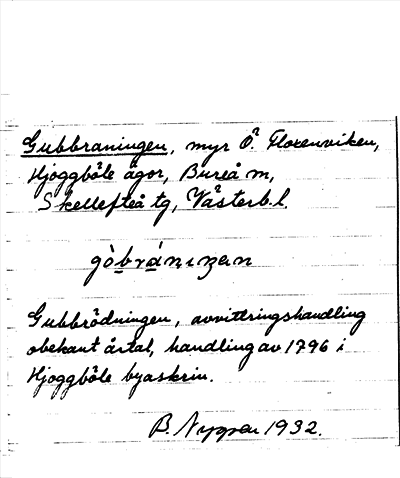 Gubbraningen, myr Ö. Florenviken,
Hjoggböle ägor, Bureå m,
Skellefteå tg, Västerb. l.
Gubbrödningen, avvittringshandling
obekant årtal, handling av 1796 i
Hjoggböle byaskrin.
B. Nygren 1932.